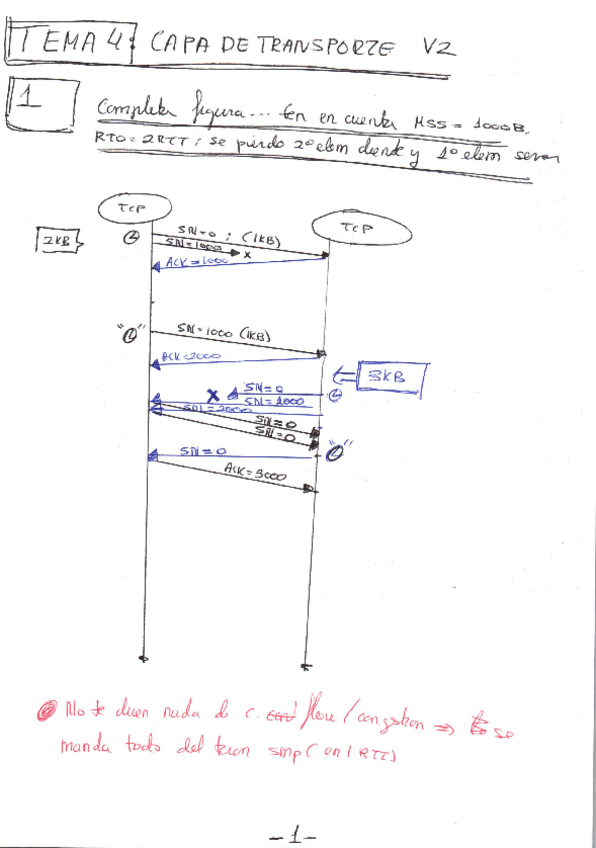 TEMA 4: CAPA DE TRANSPORTE V2
1
Completa figura... ten en cuenta MSS = 1000B,
RTO = 2RTT; se pierdo 2º elem y 1º elem
TCP
TCP
2KB
SN=0 ; (1KB)
SN=1000 x
ACK=1000
"
"
SN=1000 (1KB)
ACK=2000
3KB
X SN=0
SN=1000
SN=2000
SN=0
SN=0
"
"
SN=0
ACK=3000
No te dicen nada de c. flow/congestion ⇒ se
manda todo del tiron smp (en 1 RTT)
-1-